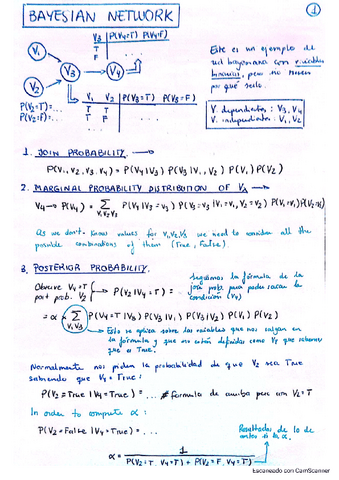 BAYESIAN NETWORK
1
V₁
V₂
V₃
V₄
V₃ P(V₄=T) P(V₄=F)
T
F
V₁ V₂ P(V₃=T) P(V₃=F)
T T
T F
P(V₂=T)=...
P(V₂=F)=...
Este es un ejemplo de
red bayesiana con variables
binarias, pero no tienen
por qué serlo.
V. dependientes: V₃, V₄
V. independientes: V₁, V₂
1. JOIN PROBABILITY →
P(V₁, V₂, V₃, V₄) = P(V₄|V₃) P(V₃|V₁, V₂) P(V₁) P(V₂)
2. MARGINAL PROBABILITY DISTRIBUTION OF V₄
V₄ → P(V₄) = Σ P(V₄|V₃=v₃) P(V₃=v₃|V₁=v₁, V₂=v₂) P(V₁=v₁) P(V₂=v₂)
V₁V₂V₃
As we don't know values for V₁, V₂, V₃ we need to consider all the
possible combinations of them (True, False).
3. POSTERIOR PROBABILITY.
Observe V₄=T
post prob. V₂
→ P(V₂|V₄=T) =
Seguimos la fórmula de la
join prob. pero poder sacar la
condición (V₄)
= α Σ P(V₄=T|V₃) P(V₃|V₁, V₂) P(V₁) P(V₂)
V₁V₃
Esto se aplica sobre las variables que nos salgan en
la fórmula y que no estén definidas como V₄ que sabemos
que es True.
Normalmente nos piden la probabilidad de que V₂ sea True
sabiendo que V₄ = True:
P(V₂=True|V₄=True) = ... fórmula de arriba pero con V₂=T
In order to compute α:
P(V₂=False|V₄=True) = ...
Resultados de lo de
antes sin la α.
α = 1
P(V₂=T, V₄=T) + P(V₂=F, V₄=T)
Escaneado con CamScanner